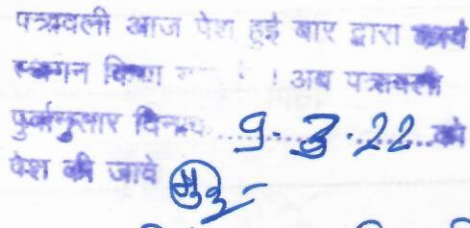 पत्रावली आज पेश हुई बार द्वारा कार्य
स्थगन किया ! अब पत्रावली
पुर्वानुसार दिनांक.......9.3.22......को
पेश की जावे